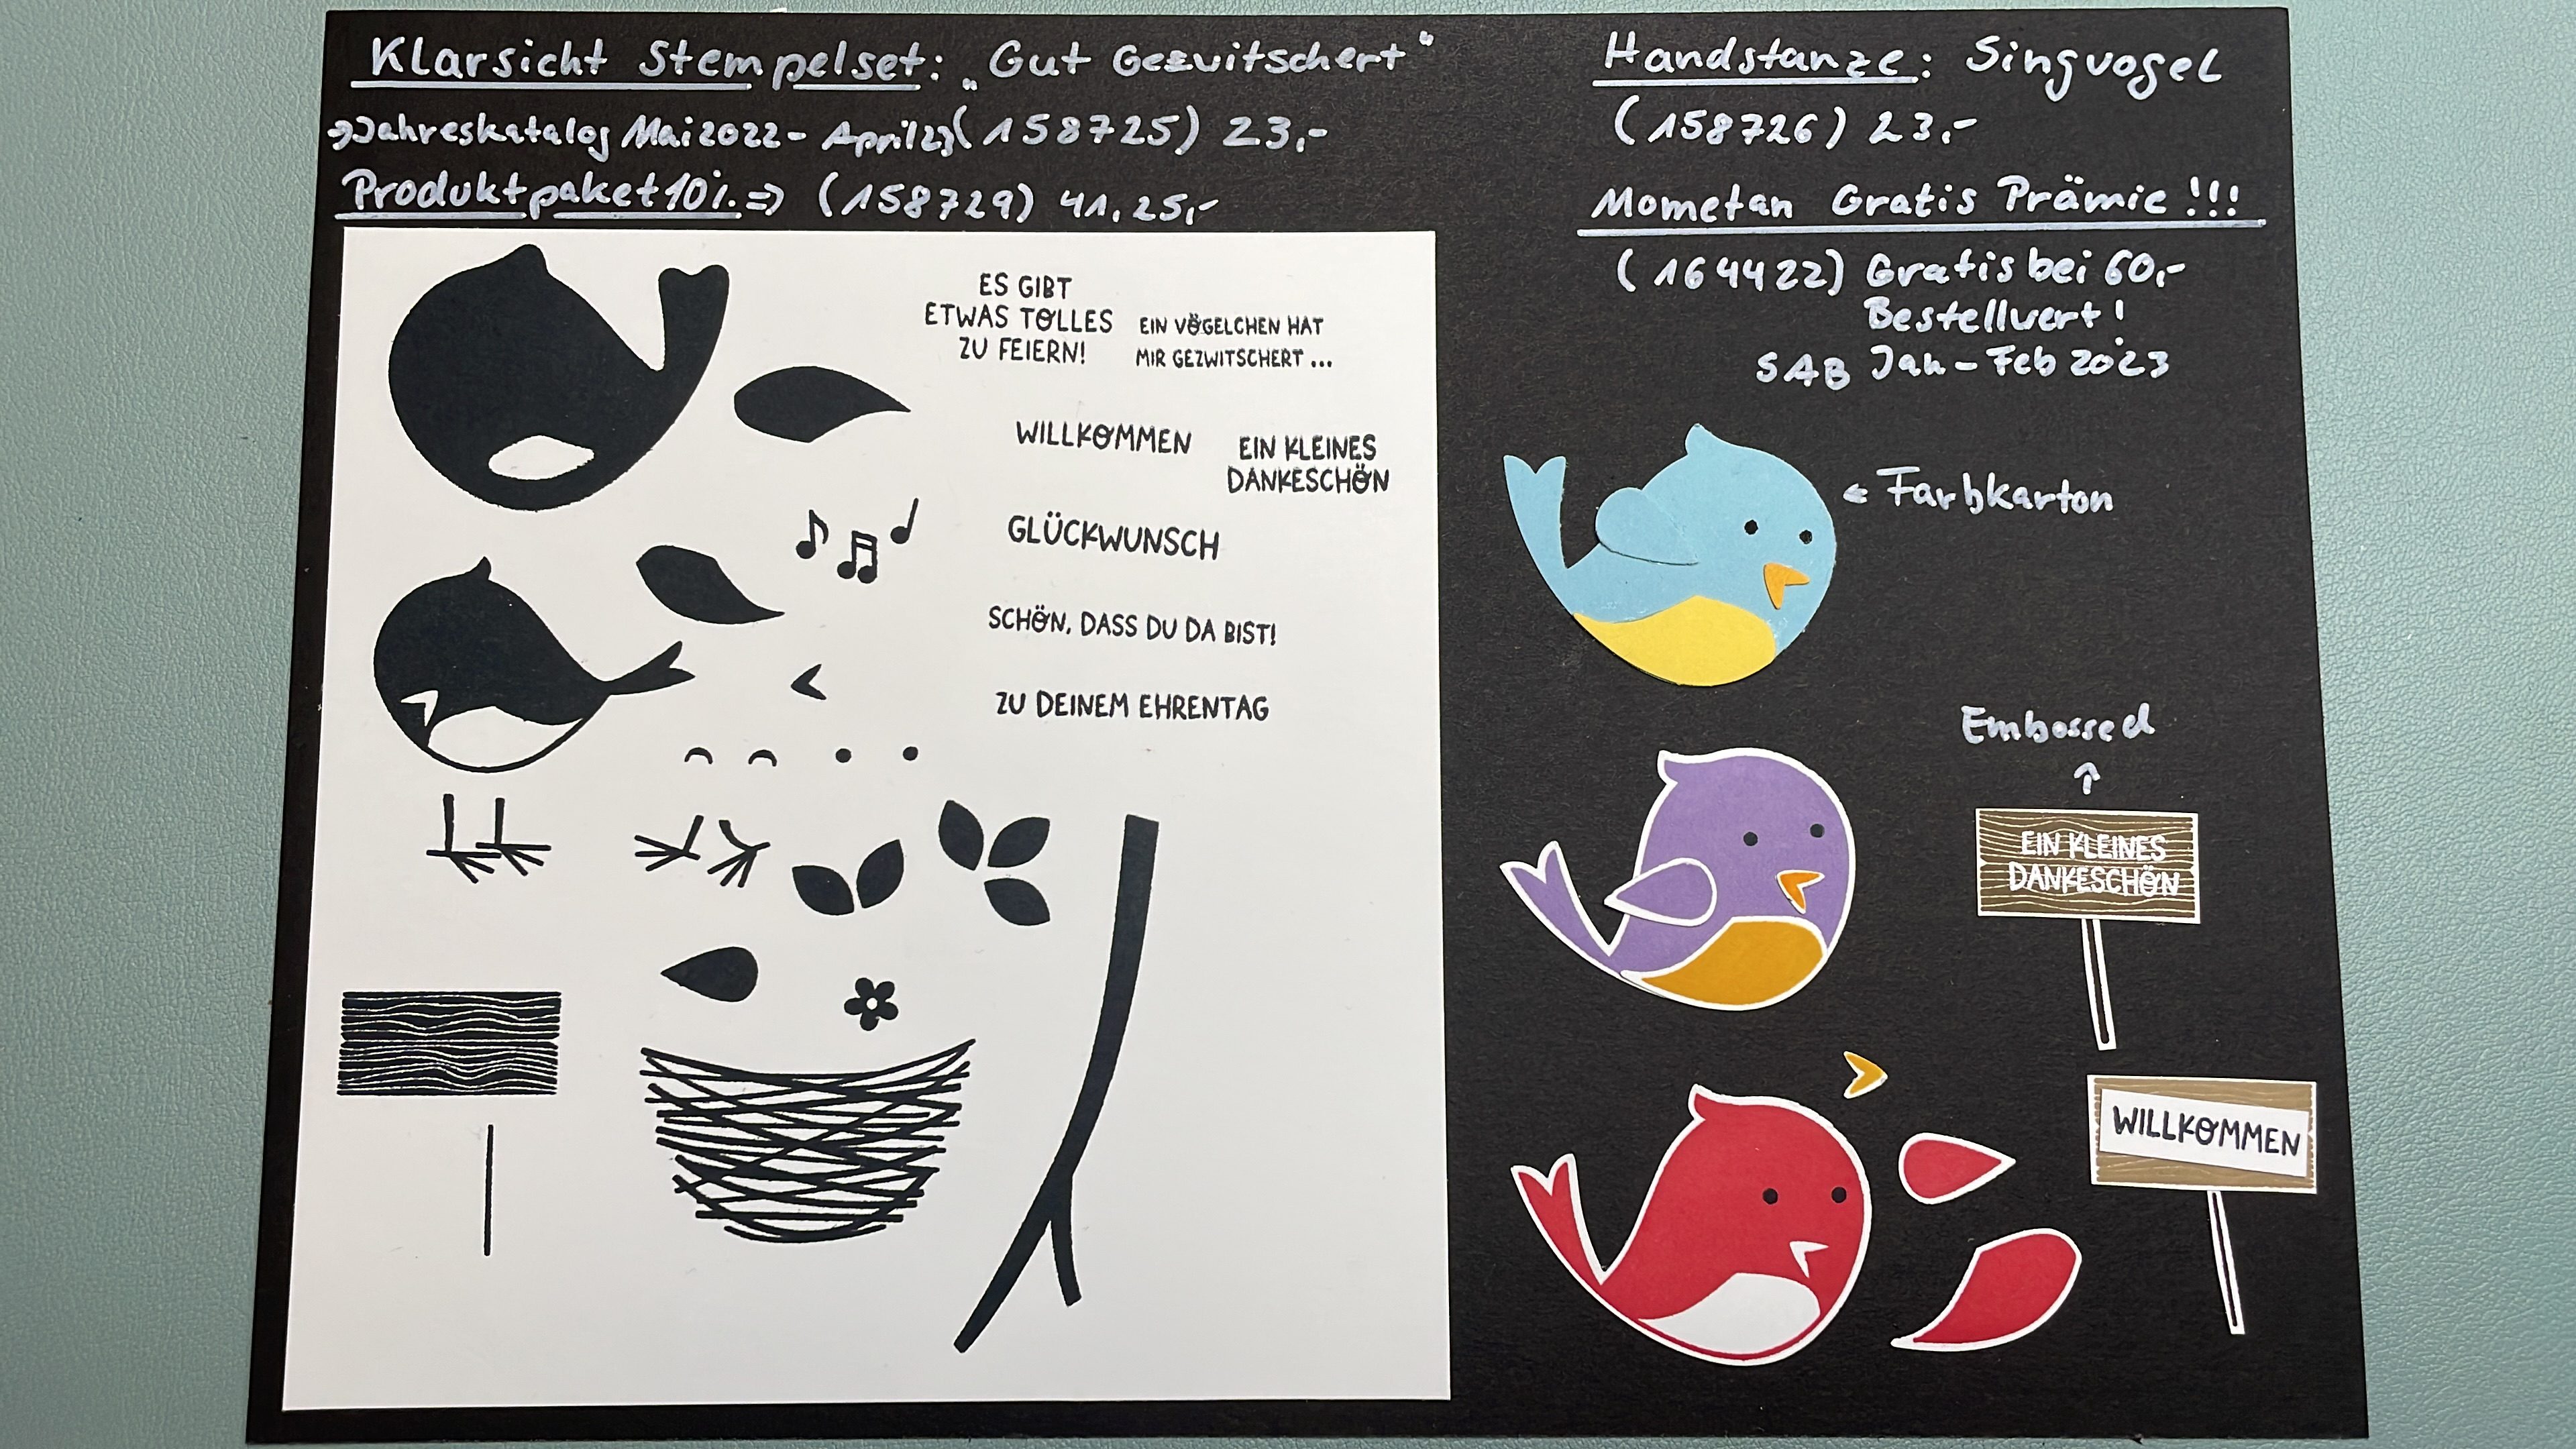 Klarsicht Stempelset: „Gut Gezwitschert"
⇒Jahreskatalog Mai 2022 - April 23 (158725) 23,-
Produktpaket 10% ⇒ (158729) 41,25,-
Handstanze: Singvogel
(158726) 23,-
Mometan Gratis Prämie!!!
(164422) Gratis bei 60,-
Bestellwert!
SAB Jan - Feb 2023
ES GIBT
ETWAS TOLLES
ZU FEIERN!
EIN VÖGELCHEN HAT
MIR GEZWITSCHERT ...
WILLKOMMEN
EIN KLEINES
DANKESCHÖN
GLÜCKWUNSCH
SCHÖN, DASS DU DA BIST!
ZU DEINEM EHRENTAG
← Farbkarton
Embossed
↑
EIN KLEINES
DANKESCHÖN
WILLKOMMEN